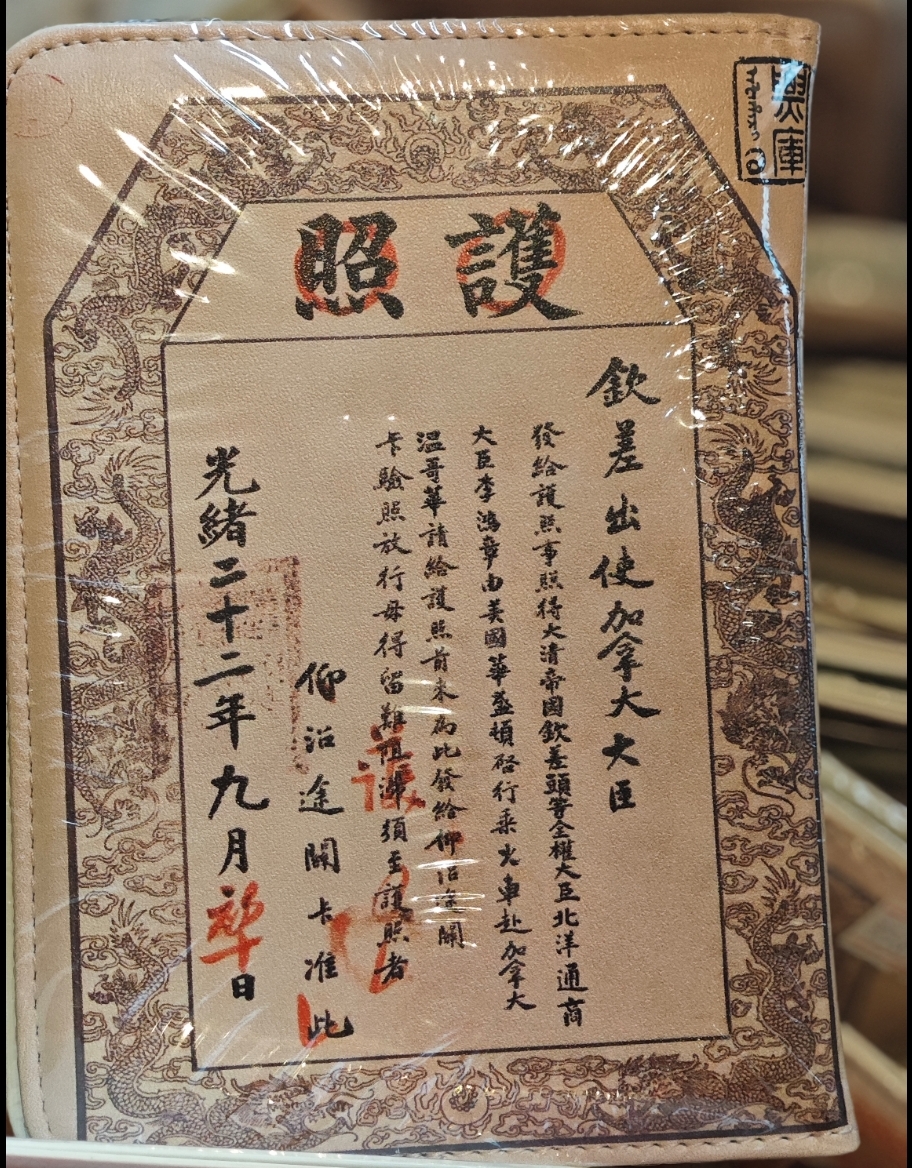 護照
欽差出使加拿大大臣
發給護照事照得大清帝國欽差頭等全權大臣北洋通商
大臣李鴻章由美國華盛頓啓行乘火車赴加拿大
溫哥華請給護照前來為此發給仰沿途關
卡驗照放行毋得留難阻滯須至護照者
仰沿途關卡准此
光緒二十二年九月初二日
庫